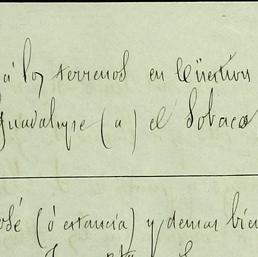 á los terrenos en cuestion
Guadalupe (a) el Sobaco
José (ó estancia) y demas bien